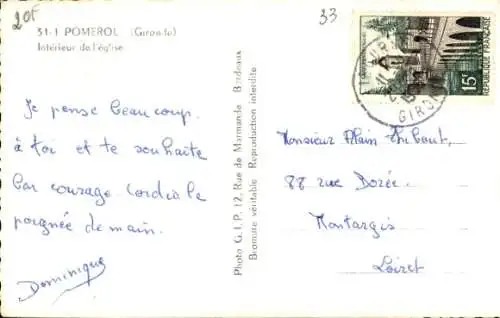 20f
33
31-1 POMEROL (Gironde)
Intérieur de l'église
Je pense beaucoup
à toi et te souhaite
bon courage. Cordiale
poignée de main.
Dominique
Photo G. I. P. 12, Rue de Marmande Bordeaux
Bromure véritable Reproduction interdite
15F
REPUBLIQUE FRANÇAISE
GIRON
Monsieur Alain Thibaut,
88 rue Dorée.
Montargis
Loiret